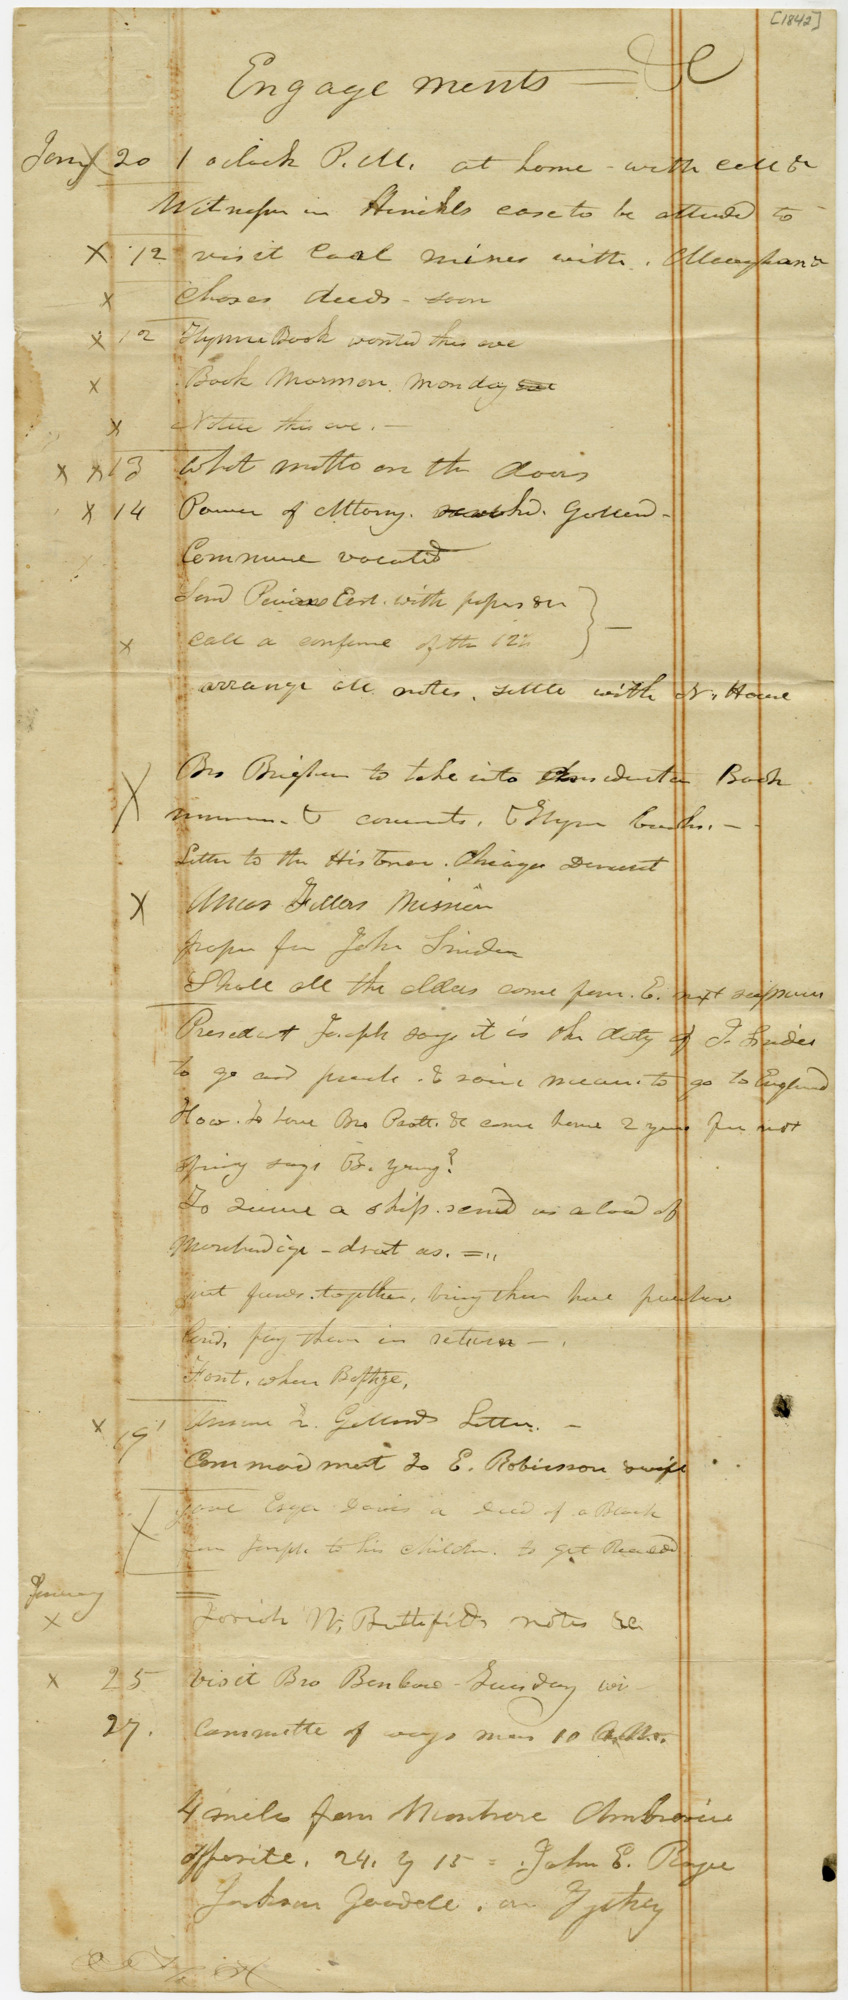 [1842]
Engagements &c
Jany 20 1 oclock P.M. at home - with call &
Witness in case to be attend to
X 12 visit Coal mines with.
X deeds - soon
X 12 Hymn Book wanted this eve
X Book Mormon. monday eve
X Notice this eve. —
X X 13 What motto on the doors
X 14 Power of Attorny. Galland -
Commune vacated
Send East. with papers &c
X call a confrence of the 12
arrange all notes. settle with N. Howe
X Bro Brigham to take into Book
mormon & covenants. & Hymn books. —
Letter to the Historian. Chicago Democrat
X Amos Fullers Mission
paper for John Snider
Shall all the Elders come from. E. next
President Joseph says it is the duty of J. Snider
to go and preach. & raise means to go to England
How. to have Bro Pratt. & come home 2 years from next
spring says B. Young?
To a ship. send us a load of
=„
put funds. together, bring them here purchase
land, pay them in return — .
Font. when Baptize,
X 19 Answer I. Gallands Letter. —
Commandment to E. Robinson & wife
X gave Davis a Deed of a Block
from Joseph to his children. to get Recorded
January
X Josiah W. Buttefields notes &c
X 25 visit Bro Benbow - Tuesday
27. Committe of ways means 10 A.M.
4 miles from Montrose Ambrosia
opposite. 24. 15 = John E. Page
Jackson Goodale. on